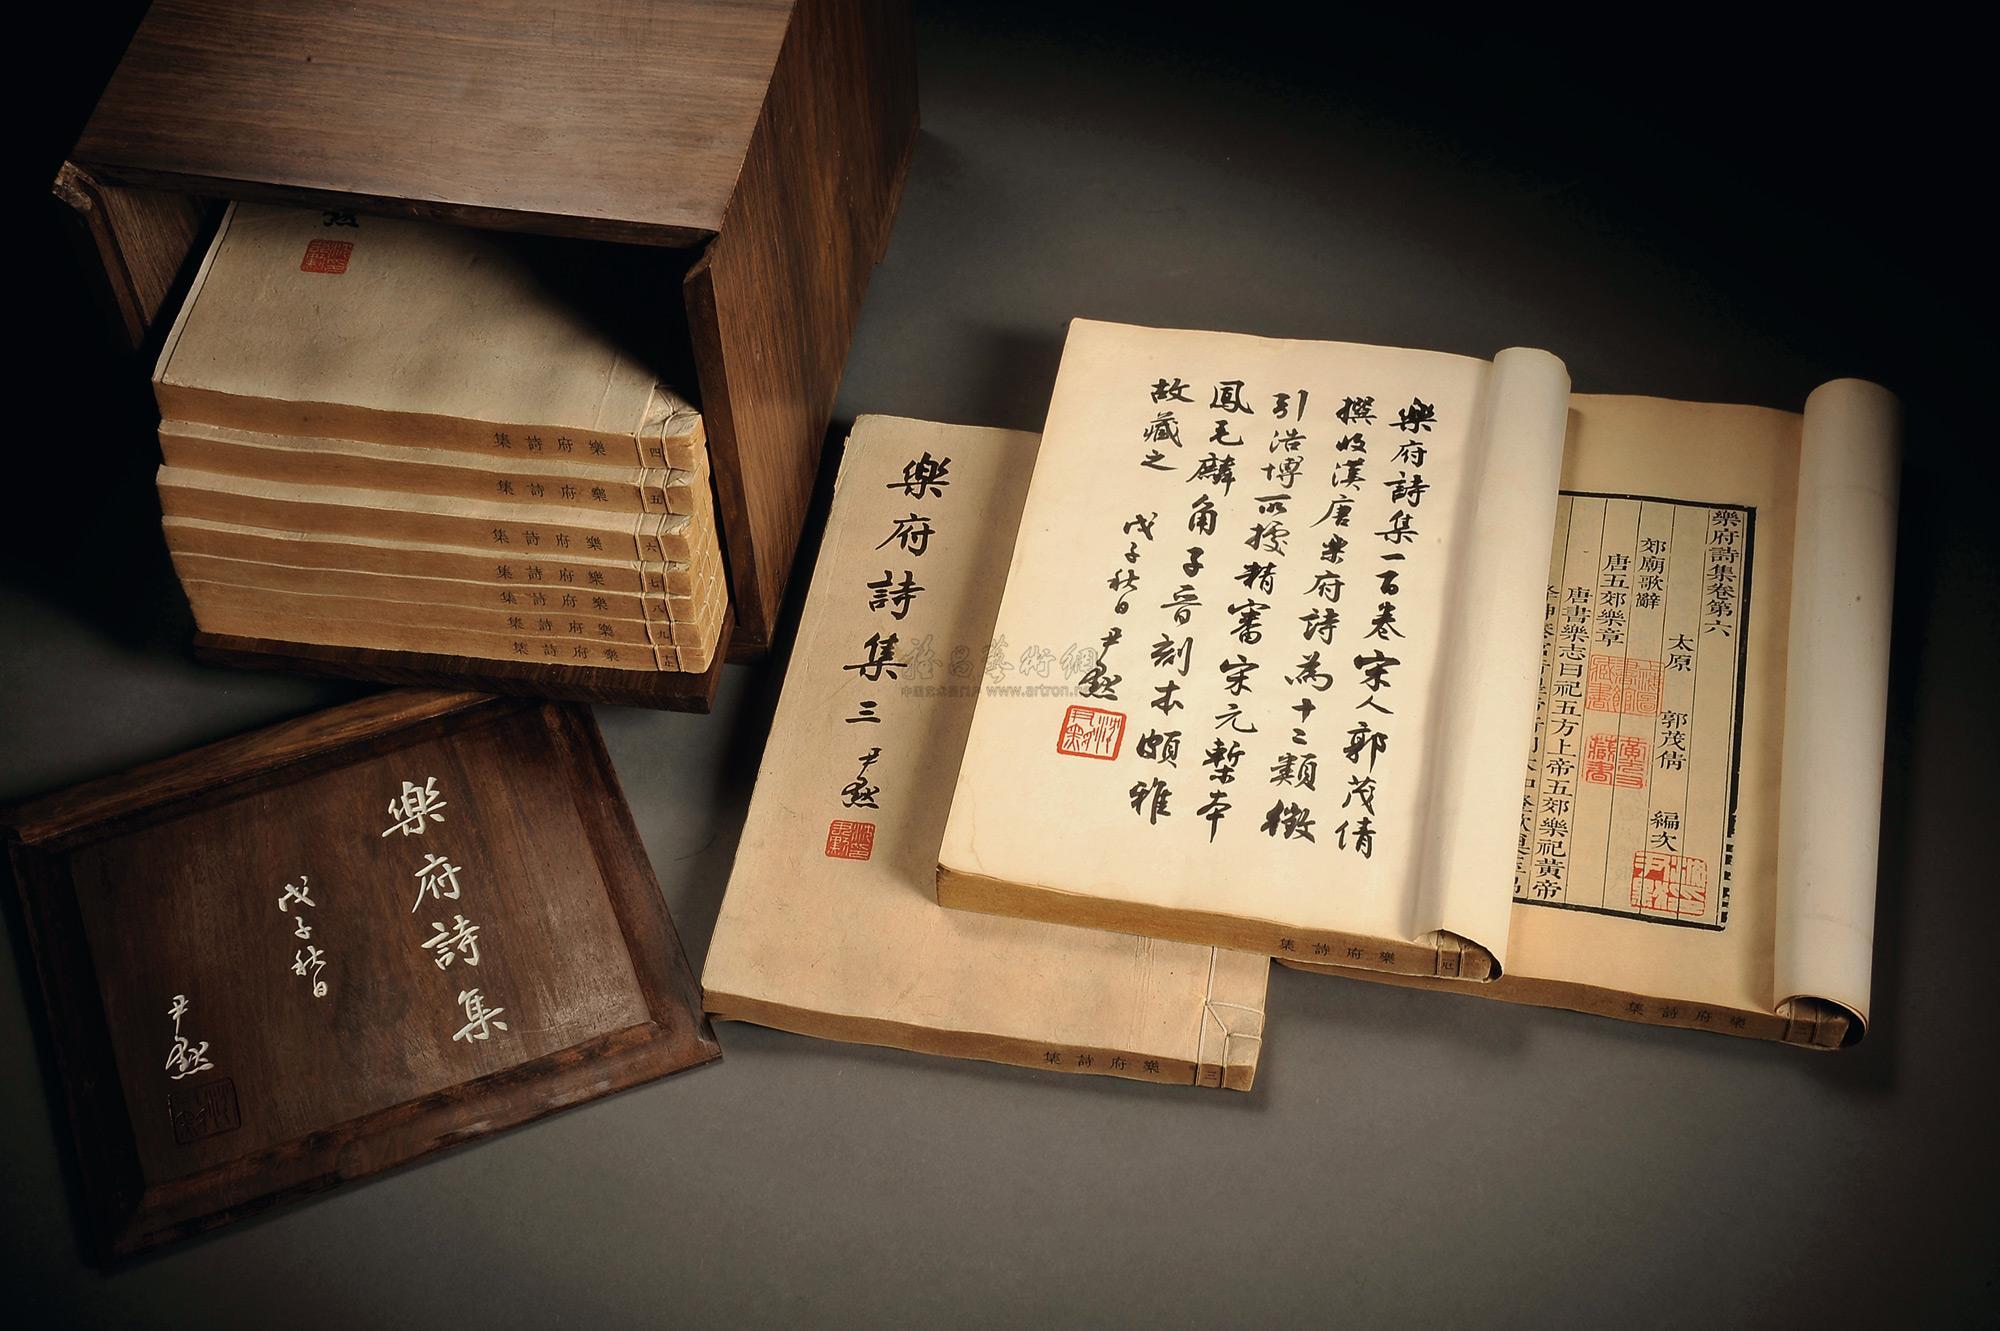 樂府詩集一百卷宋人郭茂倩
撰收漢唐樂府詩為十二類徵
引浩博所援精審宋元槧本
鳳毛麟角子晉刻本頗雅
故藏之
戊子秋日尹默
樂府詩集三
尹默
樂府詩集
戊子秋日
尹默
樂府詩集卷第六
太原 郭茂倩 編次
郊廟歌辭
唐五郊樂章
唐書樂志曰祀五方上帝五郊樂祀黃帝
默
樂府詩集 四
樂府詩集 五
樂府詩集 六
樂府詩集 七
樂府詩集 八
樂府詩集 九
樂府詩集 十止
樂府詩集 三
樂府詩集
樂府詩集 二
雅昌藝術網
www.artron.net